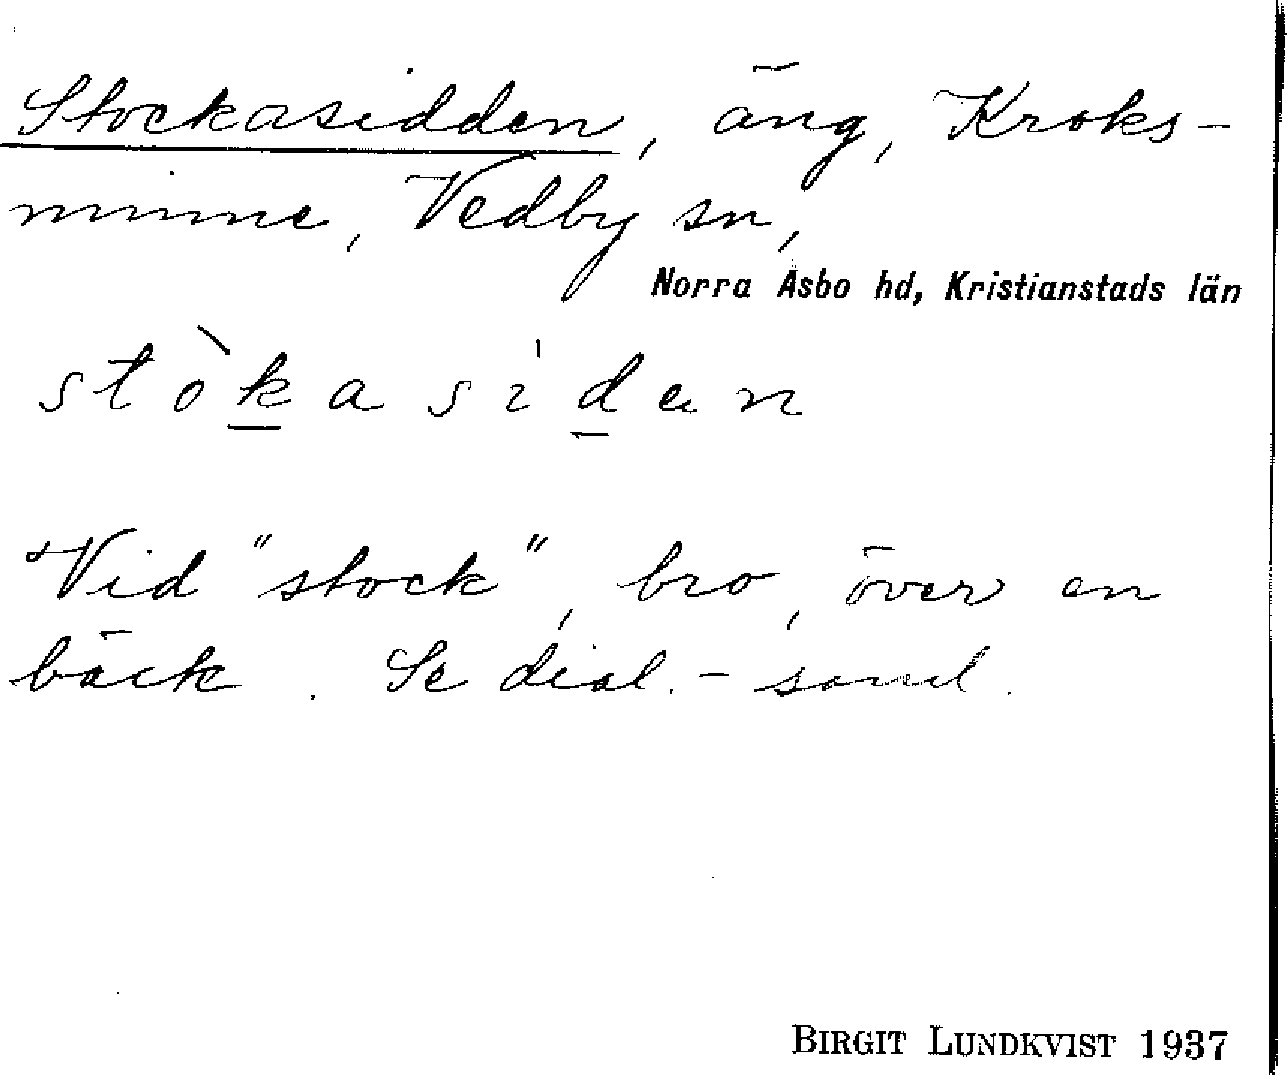 Stockasidden, äng, Kroks-
minne, Vedby sn,
Norra Åsbo hd, Kristianstads län
stò̱kasi̍ḏen
Vid "stock", bro, över en
bäck. Se dial.-saml.
BIRGIT LUNDKVIST 1937